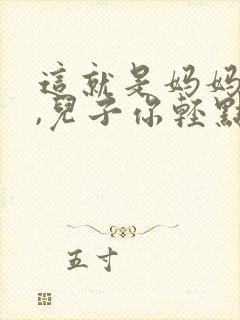 這就是妈妈
,兒子你輕點
五寸